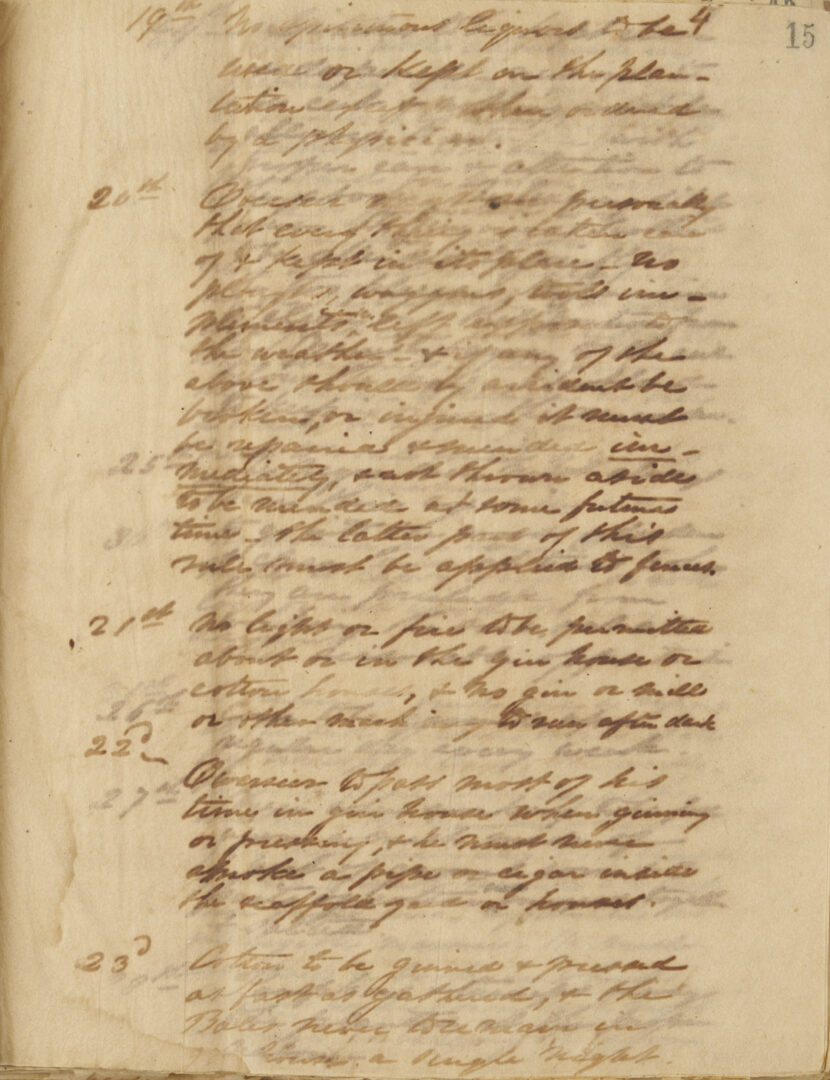 4
15
19th No spirituous liquors to be
used or kept on the plan-
tation except when ordered
by a physician.
20th Overseer must see personally
that every thing is taken care
of & kept in its place – no
ploughs, waggons, tools im-
plements, left exposed to
the weather – & if any of the
above should by accident be
broken, or injured it must
be repaired & mended im-
mediately, & not thrown aside
to be mended at some future
time – the latter part of this
rule, must be applied to fences.
21st No light or fire to be permitted
about or in the gin house or
cotton houses, & no gin or mill
or other machinery to run after dark
22d
Overseer to pass most of his
time in gin house when ginning
or pressing, & he must never
smoke a pipe or cigar inside
the scaffold yard or houses.
23d Cotton to be ginned & pressed
as fast as gathered, & the
Bales never to remain in
house a single night.